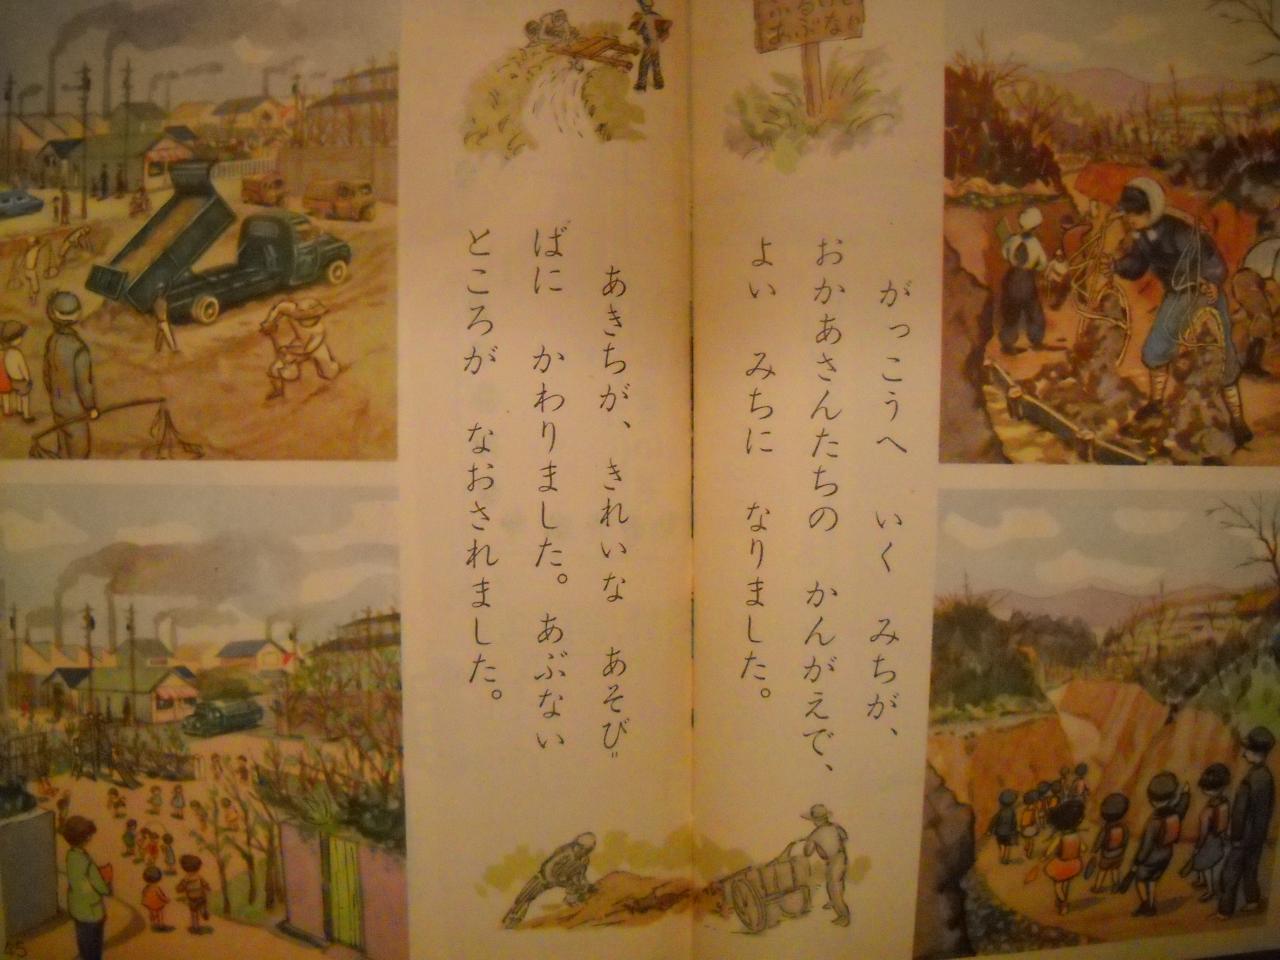 がっこうへ いく みちが、
おかあさんたちの かんがえで、
よい みちに なりました。
あきちが、きれいな あそび
ばに かわりました。あぶない
ところが なおされました。
あぶない